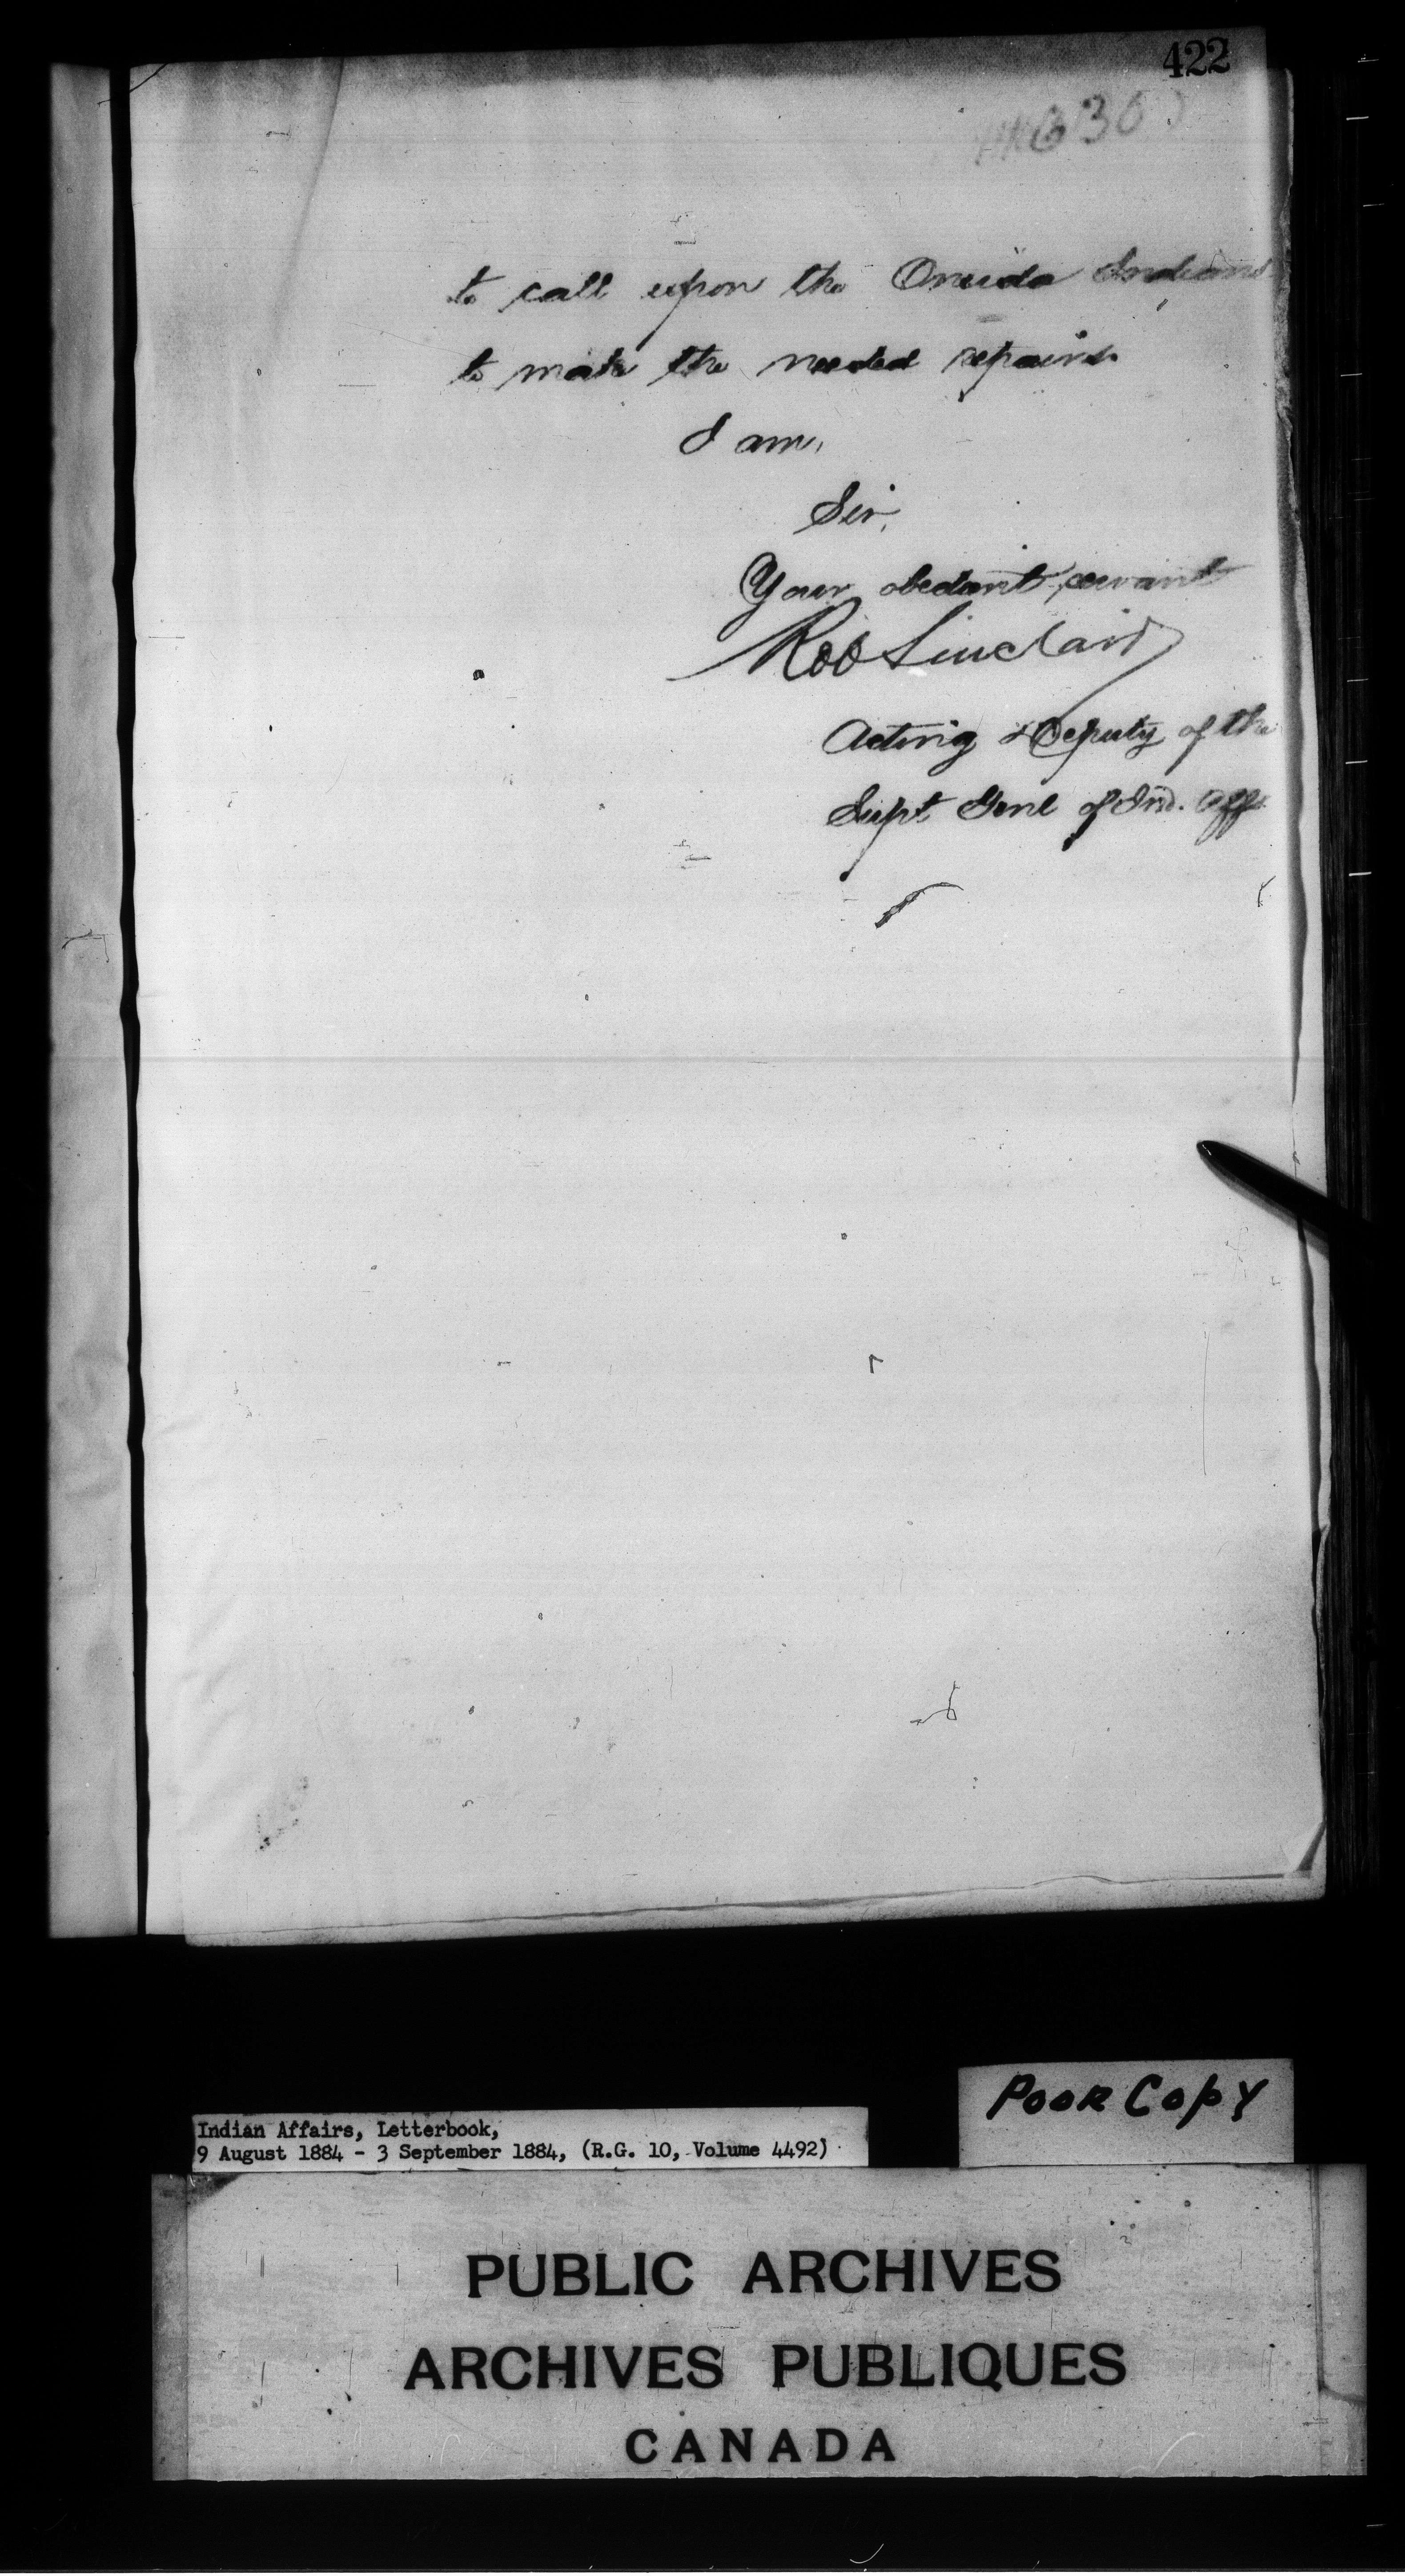 422
to call upon the Oneida Indians
to make the needed repairs
I am,
Sir,
Your obedient servant
Rob Sinclair
Acting Deputy of the
Supt Genl of Ind. Affs
Poor Copy
Indian Affairs, Letterbook,
9 August 1884 - 3 September 1884, (R.G. 10, Volume 4492)
PUBLIC ARCHIVES
ARCHIVES PUBLIQUES
CANADA